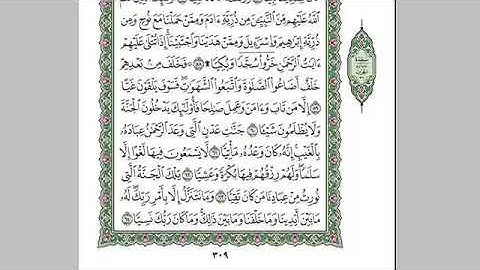 ٱللَّهُ عَلَيْهِم مِّنَ ٱلنَّبِيِّـۧنَ مِن ذُرِّيَّةِ ءَادَمَ وَمِمَّنْ حَمَلْنَا مَعَ نُوحٍ وَمِن
ذُرِّيَّةِ إِبْرَٰهِيمَ وَإِسْرَٰٓءِيلَ وَمِمَّنْ هَدَيْنَا وَٱجْتَبَيْنَآ إِذَا تُتْلَىٰ عَلَيْهِمْ
ءَايَٰتُ ٱلرَّحْمَٰنِ خَرُّوا۟ سُجَّدًا وَبُكِيًّا ۩ ٥٨ فَخَلَفَ مِنۢ بَعْدِهِمْ
خَلْفٌ أَضَاعُوا۟ ٱلصَّلَوٰةَ وَٱتَّبَعُوا۟ ٱلشَّهَوَٰتِ فَسَوْفَ يَلْقَوْنَ غَيًّا
٥٩ إِلَّا مَن تَابَ وَءَامَنَ وَعَمِلَ صَٰلِحًا فَأُو۟لَٰٓئِكَ يَدْخُلُونَ ٱلْجَنَّةَ
وَلَا يُظْلَمُونَ شَيْـًٔا ٦٠ جَنَّٰتِ عَدْنٍ ٱلَّتِى وَعَدَ ٱلرَّحْمَٰنُ عِبَادَهُۥ
بِٱلْغَيْبِ إِنَّهُۥ كَانَ وَعْدُهُۥ مَأْتِيًّا ٦١ لَّا يَسْمَعُونَ فِيهَا لَغْوًا إِلَّا
سَلَٰمًا وَلَهُمْ رِزْقُهُمْ فِيهَا بُكْرَةً وَعَشِيًّا ٦٢ تِلْكَ ٱلْجَنَّةُ ٱلَّتِى
نُورِثُ مِنْ عِبَادِنَا مَن كَانَ تَقِيًّا ٦٣ وَمَا نَتَنَزَّلُ إِلَّا بِأَمْرِ رَبِّكَ لَهُۥ
مَا بَيْنَ أَيْدِينَا وَمَا خَلْفَنَا وَمَا بَيْنَ ذَٰلِكَ وَمَا كَانَ رَبُّكَ نَسِيًّا ٦٤
٣٠٩